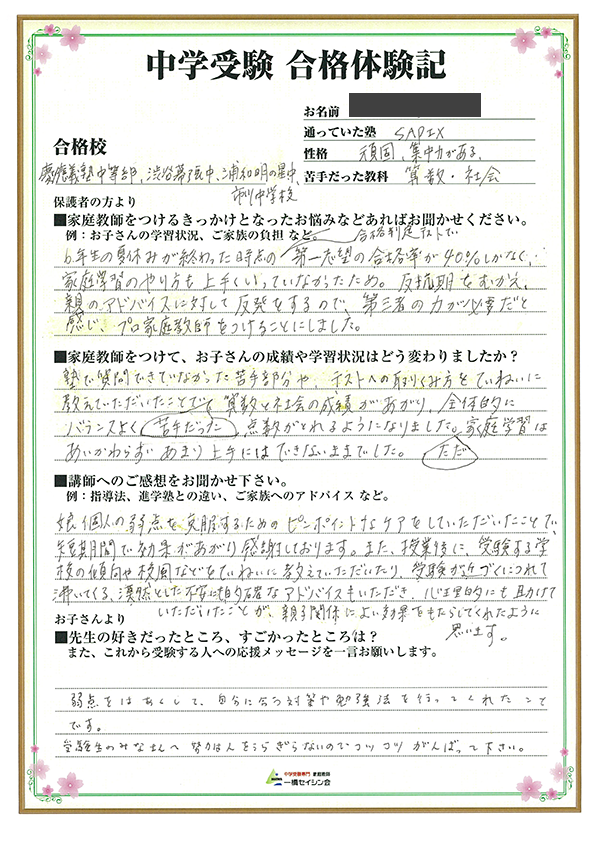 中学受験 合格体験記
お名前
通っていた塾 SAPIX
性格 頑固、集中力がある、
苦手だった教科 算数・社会
合格校
慶應義塾中等部、渋谷幕張中、浦和明の星中、
市川中学校
保護者の方より
■家庭教師をつけるきっかけとなったお悩みなどあればお聞かせください。
例：お子さんの学習状況、ご家族の負担 など。
合格判定テストで、
6年生の夏休みが終わった時点の第一志望の合格率が40%しかなく、
家庭学習のやり方も上手くいっていなかったため。反抗期をむかえ、
親のアドバイスに対して反発をするので、第三者の力が必要だと
感じ、プロ家庭教師をつけることにしました。
■家庭教師をつけて、お子さんの成績や学習状況はどう変わりましたか？
塾で質問できていなかった苦手部分や、テストへの取りくみ方をていねいに
教えていただいたことで、算数と社会の成績があがり、全体的に
バランスよく 苦手だった 点数がとれるようになりました。家庭学習は
あいかわらず あまり上手にはできないままでした。 ただ
■講師へのご感想をお聞かせ下さい。
例：指導法、進学塾との違い、ご家族へのアドバイス など。
娘個人の弱点を克服するためのピンポイントなケアをしていただいたことで、
短期間で効果があがり感謝しております。また、授業後に、受験する学
校の傾向や校風などをていねいに教えていただいたり、受験が近づくにつれて
沸いてくる、漠然とした不安にも的確なアドバイスもいただき、心理的にも助けて
いただいたことが、親子関係によい効果をもたらしてくれたように
思います。
お子さんより
■先生の好きだったところ、すごかったところは？
また、これから受験する人への応援メッセージを一言お願いします。
弱点をはあくして、自分に合う対策や勉強法を行ってくれたこと
です。
受験生のみなさんへ 努力は人をうらぎらないのでコツコツがんばって下さい。
中学受験専門 家庭教師
一橋セイシン会